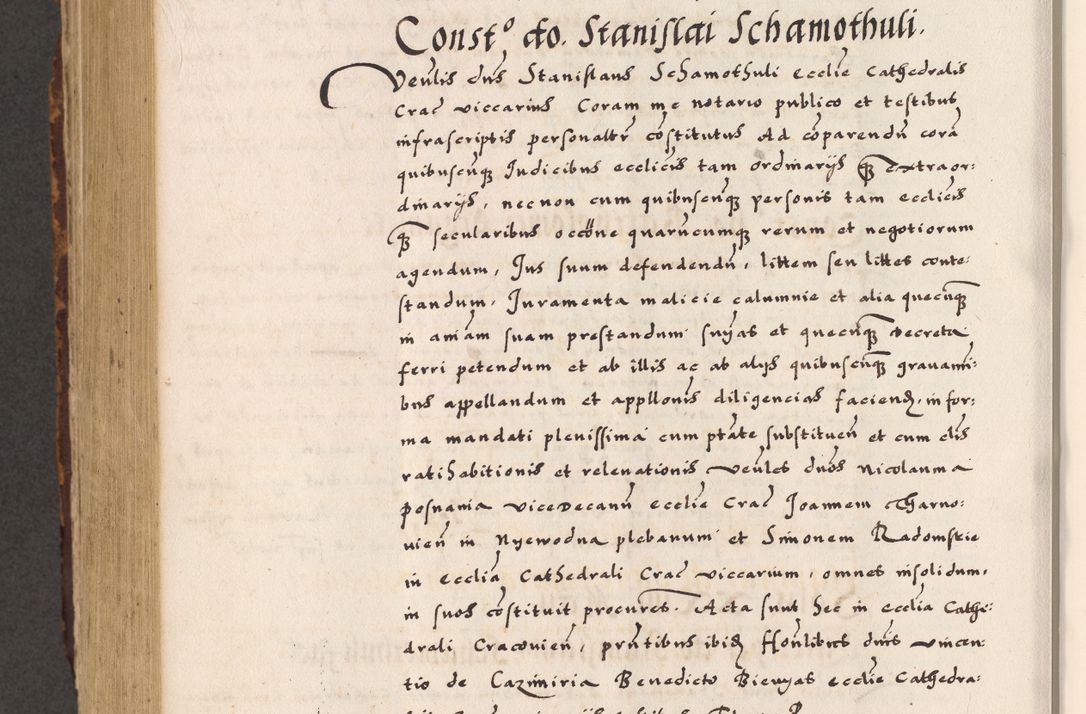 Constº do. Stanislai Schamothuli.
Venlis dns Stanislaus Schamothuli ecclie Cathedralis
Crac viccarius Coram me notario publico et testibus
infrascriptis personalitr cōstitutus Ad cōparendū corā
quibuscūqꝫ Iudicibus ecclicis tam ordinarijs qꝫ extraor:
dinarijs, necnon cum quibuscūqꝫ personis tam ecclicis
qꝫ secularibus occōne quarūcumqꝫ rerum et negotiorum
agendum, Ius suum defendendū, littem seu littes conte:
standum, Iuramenta malicie calumnie et alia quecūqꝫ
in aniām suam prestandum suijas et quecūqꝫ decreta
ferri petendum et ab illis ac ab alijs quibuscūqꝫ grauami:
bus appellandum et appllonis diligencias faciend, in for:
ma mandati plenissima cum ptāte substituen et cum clis
ratihabitionis et releuationis venles dnos Nicolaum a
posnania vicedecanū ecclie Crac Joannem Tharno:
uien in Nyewodna plebanum et Simonem Radomskie
in ecclia Cathedrali Crac viccarium, omnes insolidum,
in suos cōstituit procures. Acta sunt hec in ecclia Cathe:
drali Cracouien, pntibus ibid Honlibus dnis vincen:
tio de Cazimiria Benedicto Biewyas ecclie Cathedra: